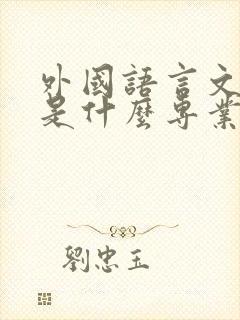 外國語言文
是什麼專業
劉忠玉